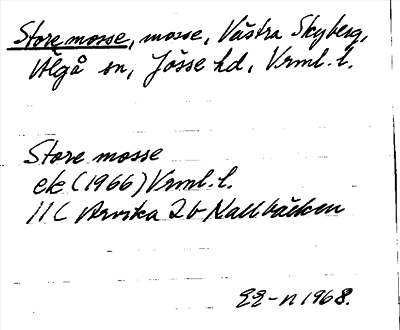 Store mosse, mosse, Västra Skyberg,
Älgå sn, Jösse hd, Vrml. l.
Store mosse
ek (1966) Vrml. l.
11 C Arvika 2b Kallbäcken
1968.